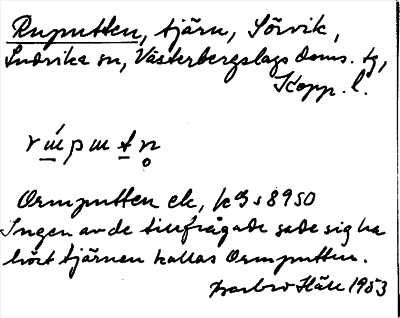 Ruputten, tjärn, Sörvik,
Ludvika sn, Västerbergslags doms. tg,
Kopp. l.
Ormputten ek, kB s 8950
Ingen av de tillfrågade sade sig ha
hört tjärnen kallas Ormputten.
Barbro Häll 1953